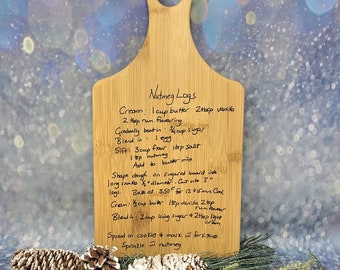 Nutmeg Logs
Cream: 1 cup butter 2 tsp vanilla
2 tsp rum flavouring
Gradually beat in: 3/4 cup sugar
Blend in: 1 egg
Sift: 3 cup flour 1 tsp salt
1 tsp nutmeg
Add to butter mix
Shape dough on sugared board into
long snakes 1/2" diameter - Cut into 3"
logs Bake at 350° for 12-15 min Cool
Cream: 1/3 cup butter 1 tsp vanilla 2 tsp
rum flavour
Blend in: 2 cup icing sugar & 2 tbsp light
cream
Spread on cookies & mark
Sprinkle nutmeg